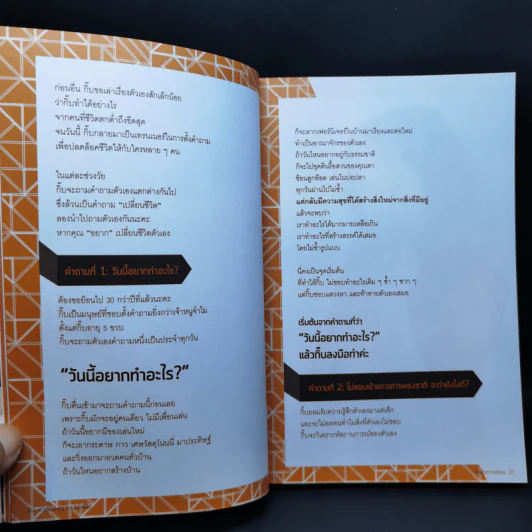 ก่อนอื่น กิ๊บขอเล่าเรื่องตัวเองสักเล็กน้อย
ว่ากิ๊บทำได้อย่างไร
จากคนที่ชีวิตตกต่ำถึงขีดสุด
จนวันนี้ กิ๊บกลายมาเป็นเทรนเนอร์ในการตั้งคำถาม
เพื่อปลดล็อคชีวิตให้กับใครหลาย ๆ คน
ในแต่ละช่วงวัย
กิ๊บจะถามคำถามตัวเองแตกต่างกันไป
ซึ่งล้วนเป็นคำถาม "เปลี่ยนชีวิต"
ลองนำไปถามตัวเองกันนะคะ
หากคุณ "อยาก" เปลี่ยนชีวิตตัวเอง
คำถามที่ 1: วันนี้อยากทำอะไร?
ต้องขอย้อนไป 30 กว่าปีที่แล้วนะคะ
กิ๊บเป็นมนุษย์ที่ชอบตั้งคำถามยิ่งกว่าเจ้าหนูจำไม
ตั้งแต่กิ๊บอายุ 5 ขวบ
กิ๊บจะถามตัวเองคำถามหนึ่งเป็นประจำทุกวัน
"วันนี้อยากทำอะไร?"
กิ๊บตื่นเช้ามาจะถามคำถามนี้ก่อนเลย
เพราะกิ๊บมักจะอยู่คนเดียว ไม่มีเพื่อนเล่น
ถ้าวันนี้อยากมีของเล่นใหม่
ก็จะเอากระดาษ กาว เศษวัสดุโน่นนี่ มาประดิษฐ์
และวิ่งออกมาอวดคนทั่วบ้าน
ถ้าวันไหนอยากสร้างบ้าน
ก็จะลากเฟอร์นิเจอร์ในบ้านมาเรียงและต่อใหม่
ทำเป็นอาณาจักรของตัวเอง
ถ้าวันไหนอยากอยู่กับธรรมชาติ
ก็จะไปขุดดินรื้อสวนของคุณตา
ช้อนลูกอ๊อด เล่นในบ่อปลา
ทุกวันผ่านไปไม่ซ้ำ
แต่กลับมีความสุขที่ได้สร้างสิ่งใหม่จากสิ่งที่มีอยู่
แล้วจะพบว่า
เราทำอะไรได้มากมายเหลือเกิน
เราทำอะไรที่สร้างสรรค์ได้เสมอ
โดยไม่ซ้ำรูปแบบ
นี่คงเป็นจุดเริ่มต้น
ที่ทำให้กิ๊บ ไม่ชอบทำอะไรเดิม ๆ ซ้ำ ๆ ซาก ๆ
แต่กิ๊บชอบแสวงหา และท้าทายตัวเองเสมอ
เริ่มต้นจากคำถามที่ว่า
"วันนี้อยากทำอะไร?"
แล้วกิ๊บลงมือทำค่ะ
คำถามที่ 2: ไม่ชอบเข้าแถวเคารพธงชาติ จะทำยังไงดี?
กิ๊บยอมรับความรู้สึกตัวเองมาแต่เด็ก
และจะไม่อดทนทำในสิ่งที่ตัวเองไม่ชอบ
กิ๊บจะวิเคราะห์สถานการณ์ของตัวเอง